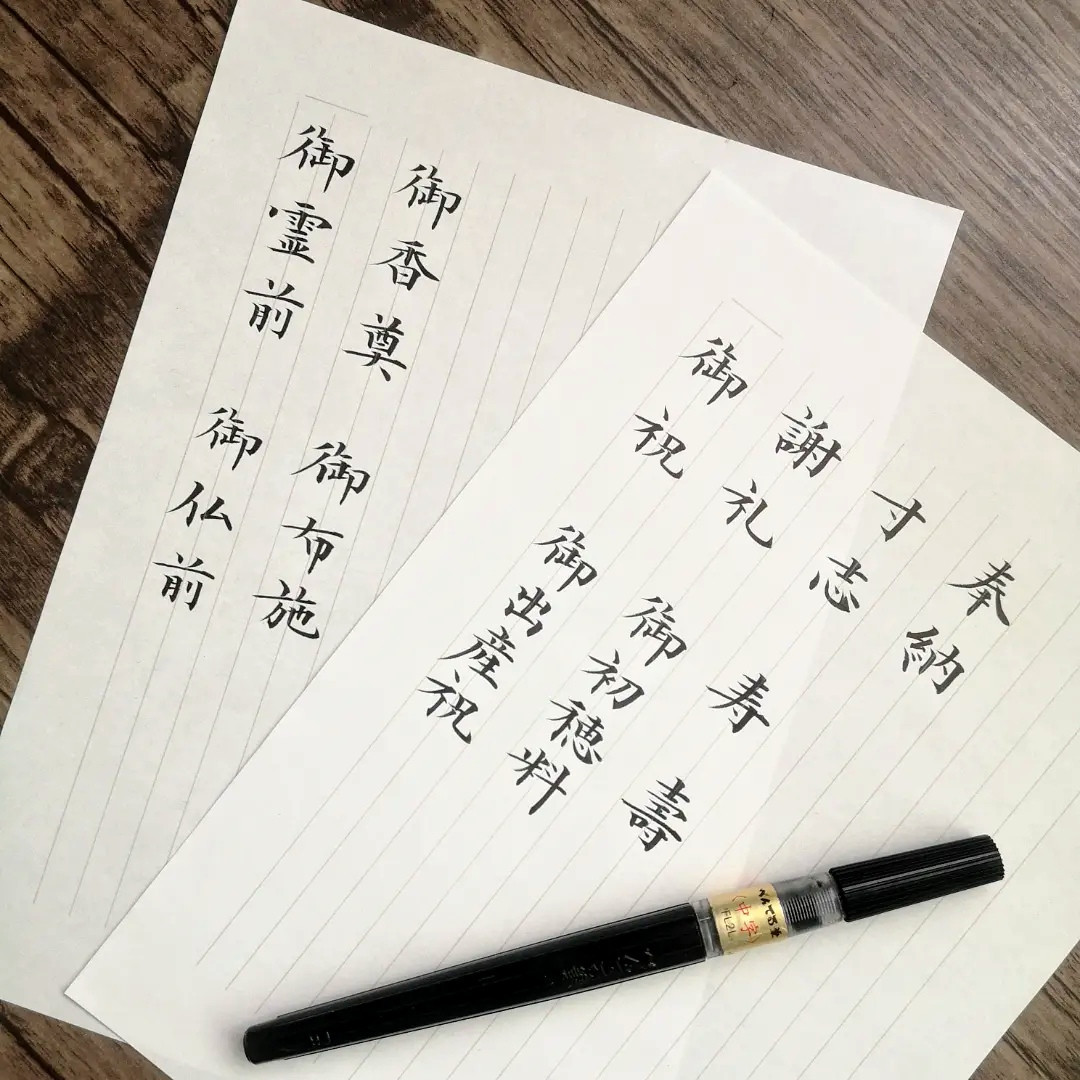 御香奠　御布施
御霊前　御仏前
奉納
寸志　寿　壽
謝礼　御初穂料
御祝　御出産祝
ぺんてる筆
(中字)
FL2L